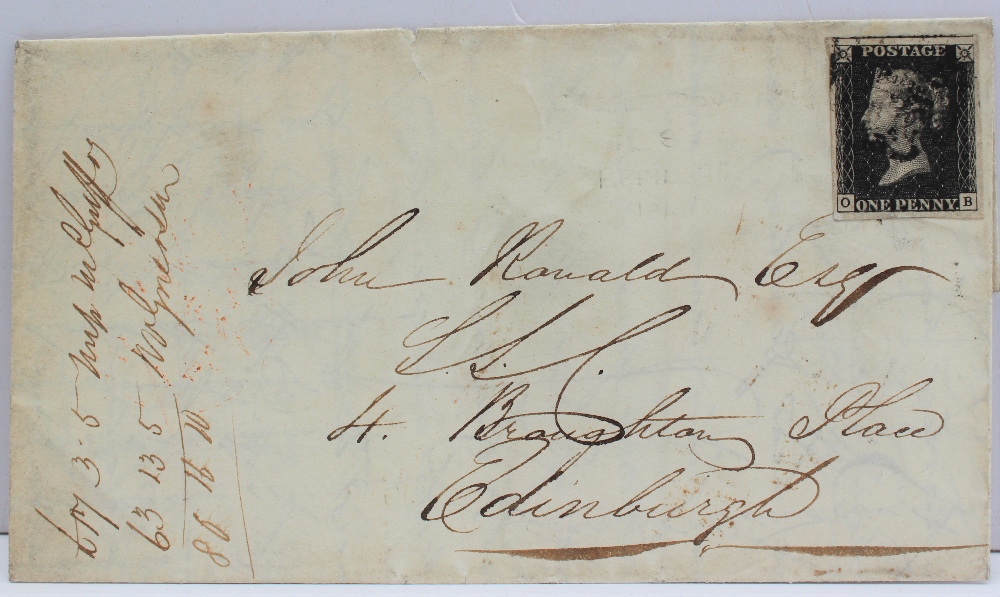 POSTAGE
O ONE PENNY. B
John Ronald Esq
S.S.C.
4. Broughton Place
Edinburgh
3 5
63 13 5